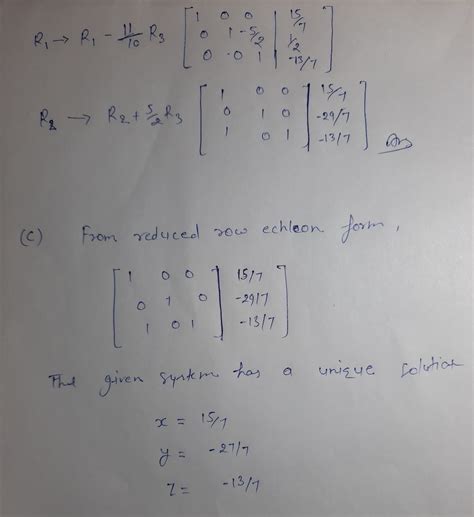 R1 → R1 - 11/10 R3 [ 1 0 0 | 15/7 ]
[ 0 1 -5/2 | 1/2 ]
[ 0 0 1 | -13/7 ]
R2 → R2 + 5/2 R3 [ 1 0 0 | 15/7 ]
[ 0 1 0 | -29/7 ]
[ 1 0 1 | -13/7 ] Ans
(C) From reduced row echleon form,
[ 1 0 0 | 15/7 ]
[ 0 1 0 | -29/7 ]
[ 1 0 1 | -13/7 ]
The given system has a unique solution
x = 15/7
y = -27/7
z = -13/7